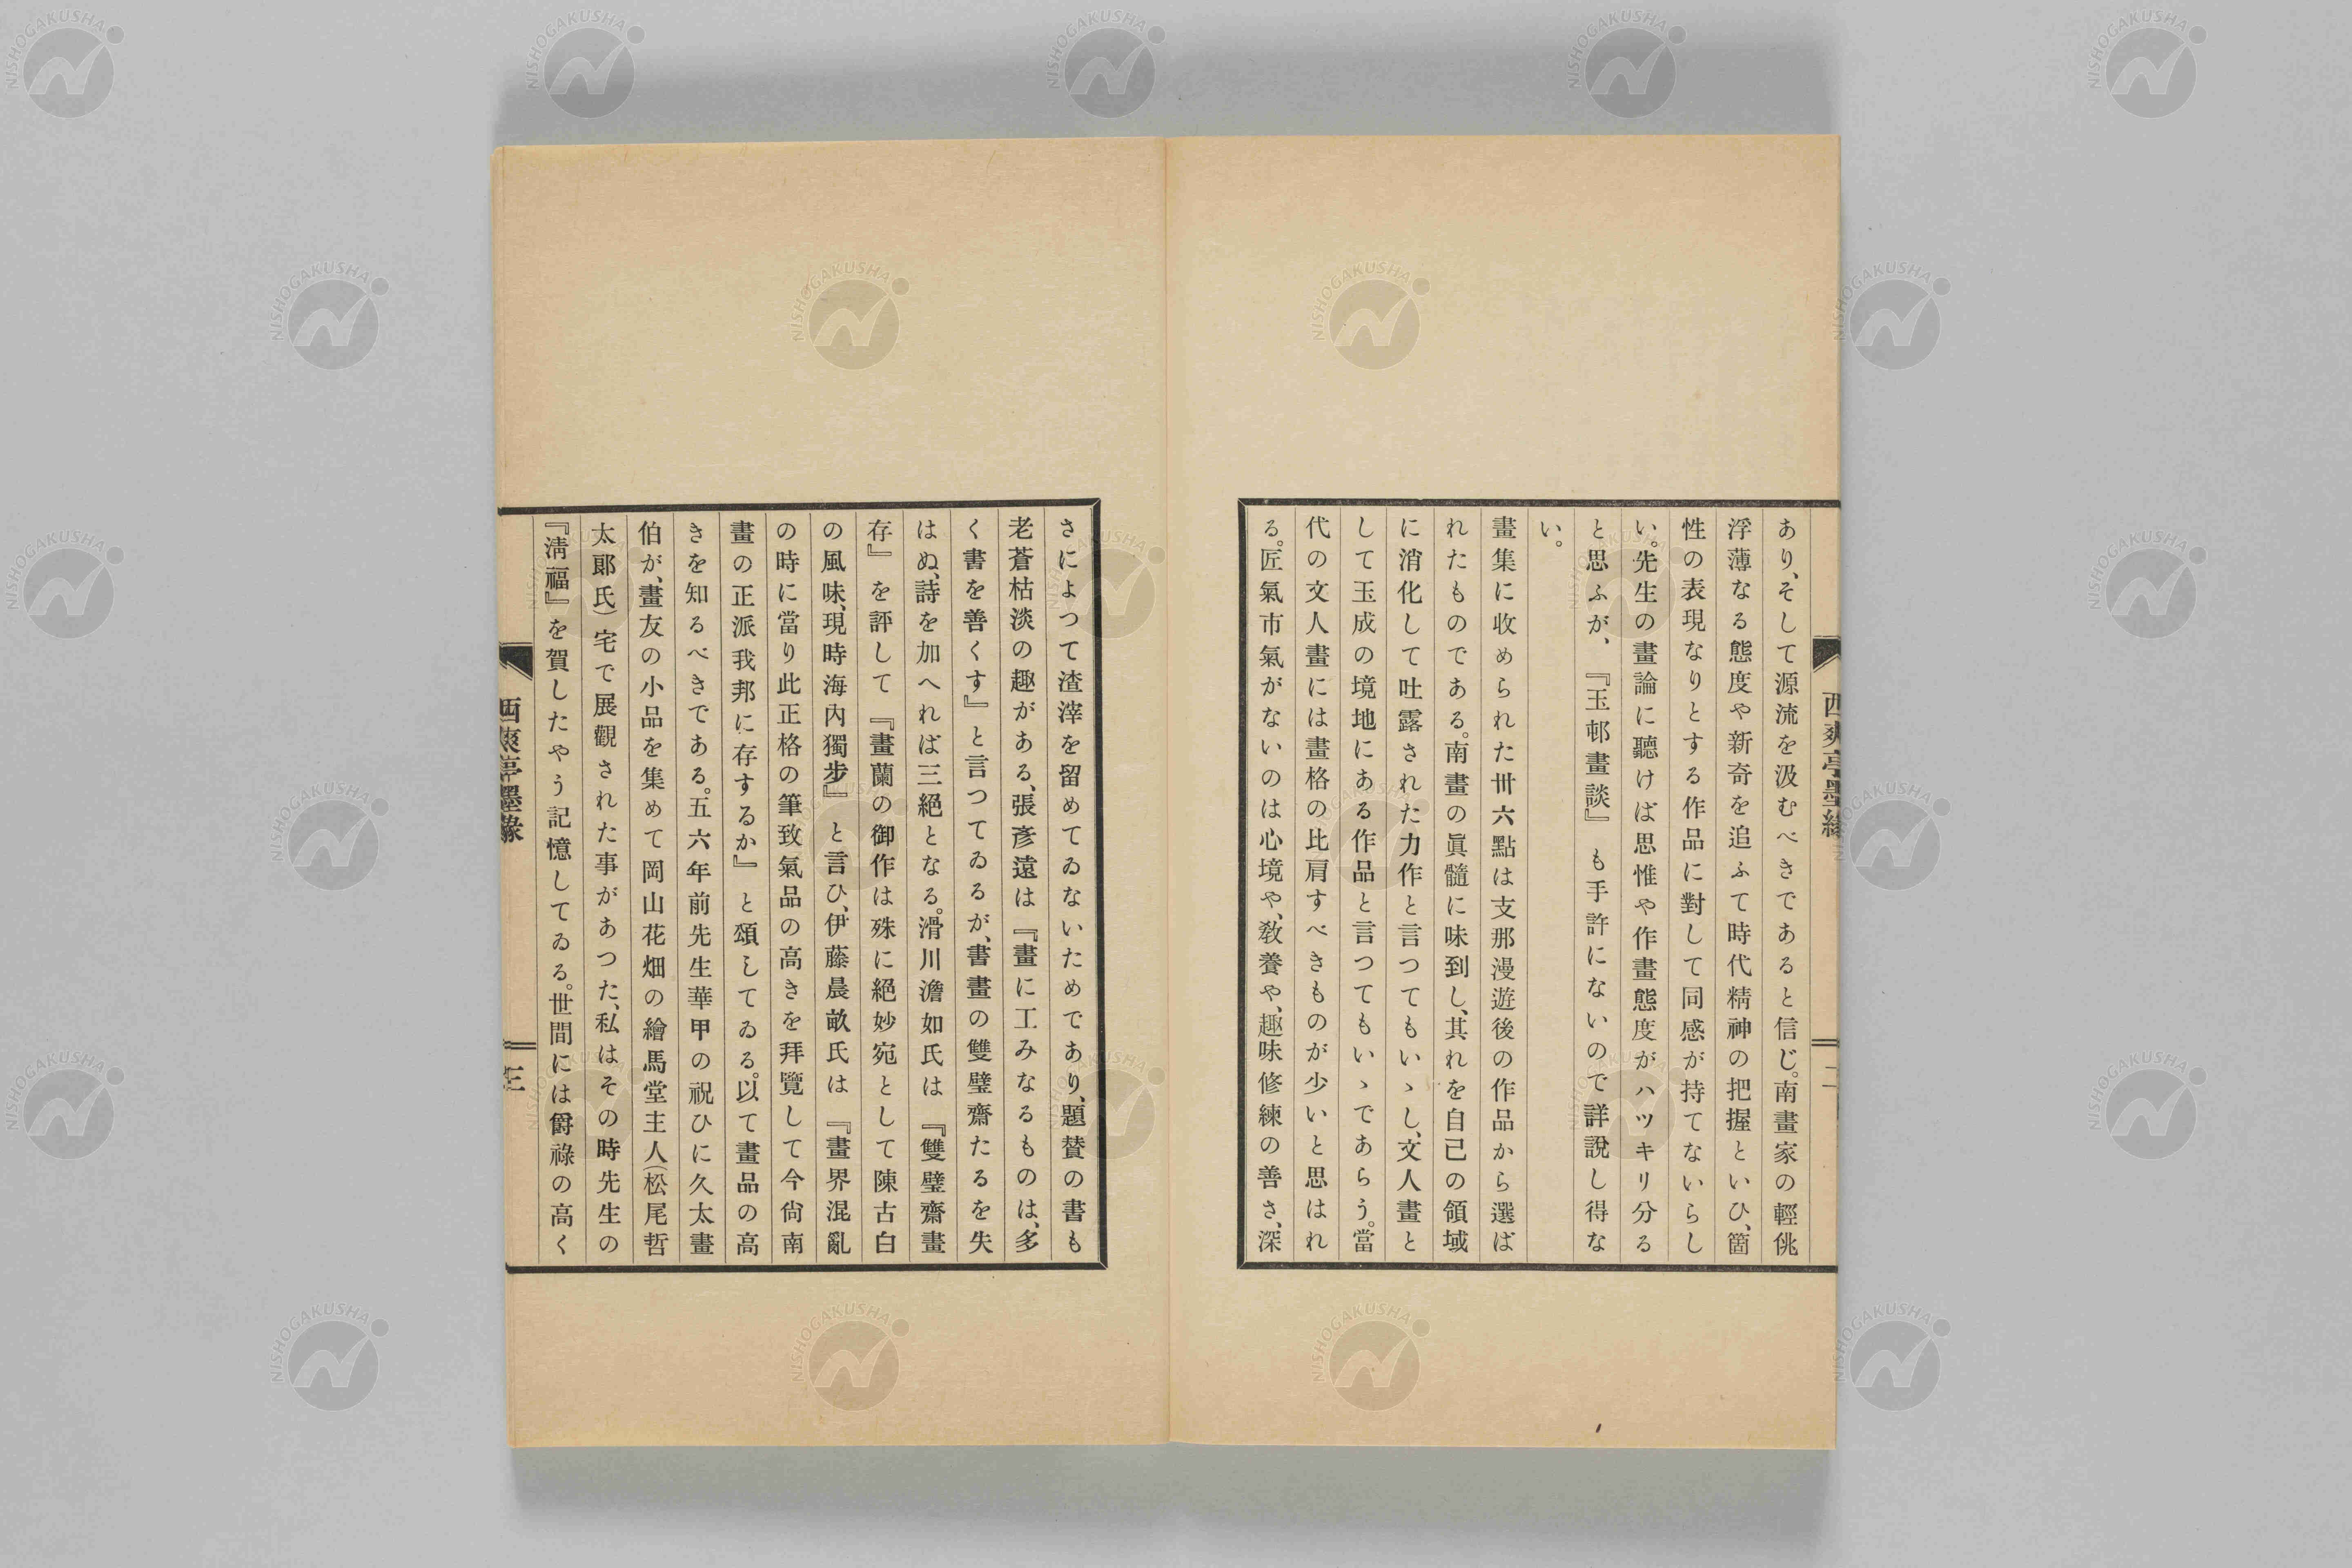 西爽亭墨緣
二
あり、そして源流を汲むべきであると信じ。南畫家の輕佻
浮薄なる態度や新奇を追ふて時代精神の把握といひ、箇
性の表現なりとする作品に對して同感が持てないらし
い。先生の畫論に聽けば思惟や作畫態度がハツキリ分る
と思ふが、『玉邨畫談』も手許にないので詳說し得な
い。
畫集に收められた卅六點は支那漫遊後の作品から選ば
れたものである。南畫の眞髓に味到し、其れを自己の領域
に消化して吐露された力作と言つてもいゝし、文人畫と
して玉成の境地にある作品と言つてもいゝであらう。當
代の文人畫には畫格の比肩すべきものが少いと思はれ
る。匠氣市氣がないのは心境や、敎養や、趣味修練の善さ、深
さによつて渣滓を留めてゐないためであり、題賛の書も
老蒼枯淡の趣がある、張彥遠は『畫に工みなるものは、多
く書を善くす』と言つてゐるが、書畫の雙璧齋たるを失
はぬ、詩を加へれば三絕となる。滑川澹如氏は『雙璧齋畫
存』を評して『畫蘭の御作は殊に絕妙宛として陳古白
の風味、現時海內獨步』と言ひ、伊藤晨畝氏は『畫界混亂
の時に當り此正格の筆致氣品の高きを拜覽して今尙南
畫の正派我邦に存するか』と頌してゐる。以て畫品の高
きを知るべきである。五六年前先生華甲の祝ひに久太畫
伯が、畫友の小品を集めて岡山花畑の繪馬堂主人(松尾哲
太郞氏)宅で展觀された事があつた、私はその時先生の
『淸福』を賀したやう記憶してゐる。世間には爵祿の高く
西爽亭墨緣
三
NISHOGAKUSHA